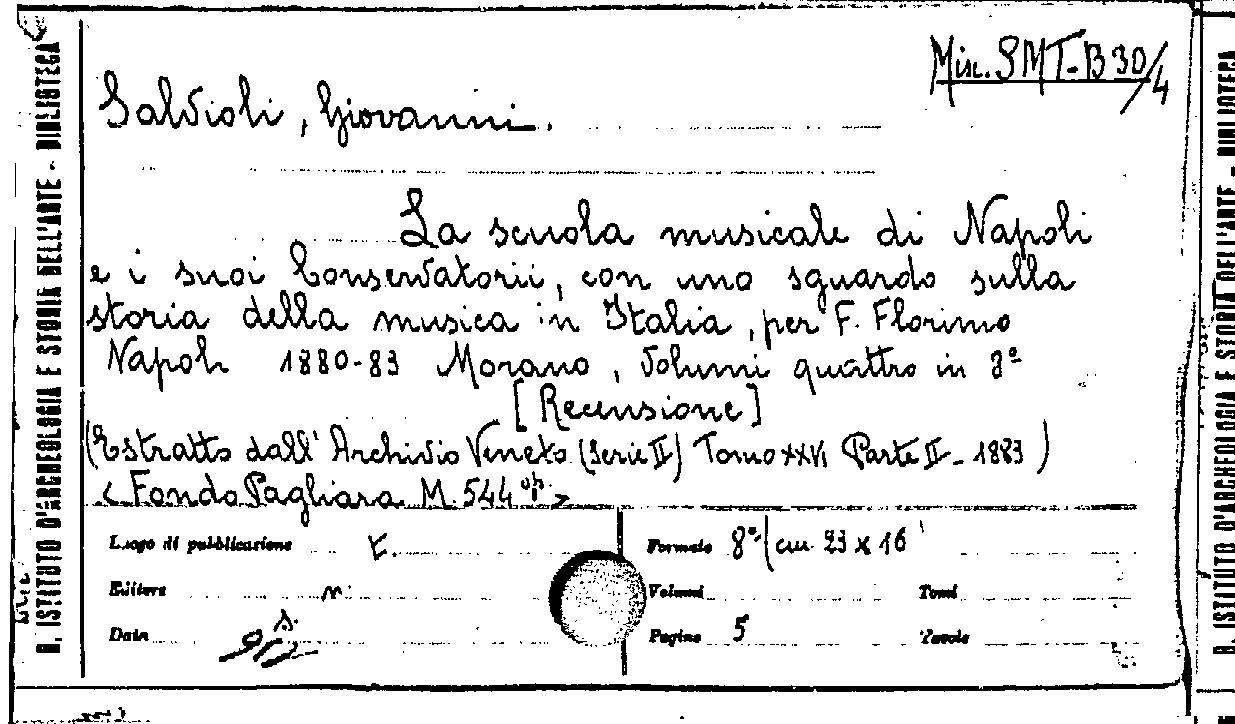 Misc. SMT-B 30/4
Salvioli, Giovanni.
La scuola musicale di Napoli
e i suoi Conservatorii, con uno sguardo sulla
storia della musica in Italia, per F. Florimo
Napoli 1880-83 Morano, Volumi quattro in 8º
[Recensione]
(Estratto dall'Archivio Veneto (Serie II) Tomo XXVI Parte II - 1883)
< Fondo Pagliara M. 544 op. >
Luogo di pubblicazione
Formato 8º/cm. 23 x 16
Editore n.
Volumi
Tomi
Data
Pagine 5
Tavole
R. ISTITUTO D'ARCHEOLOGIA E STORIA DELL'ARTE - BIBLIOTECA
R. ISTITUTO D'ARCHEOLOGIA E STORIA DELL'ARTE - BIBLIOTECA